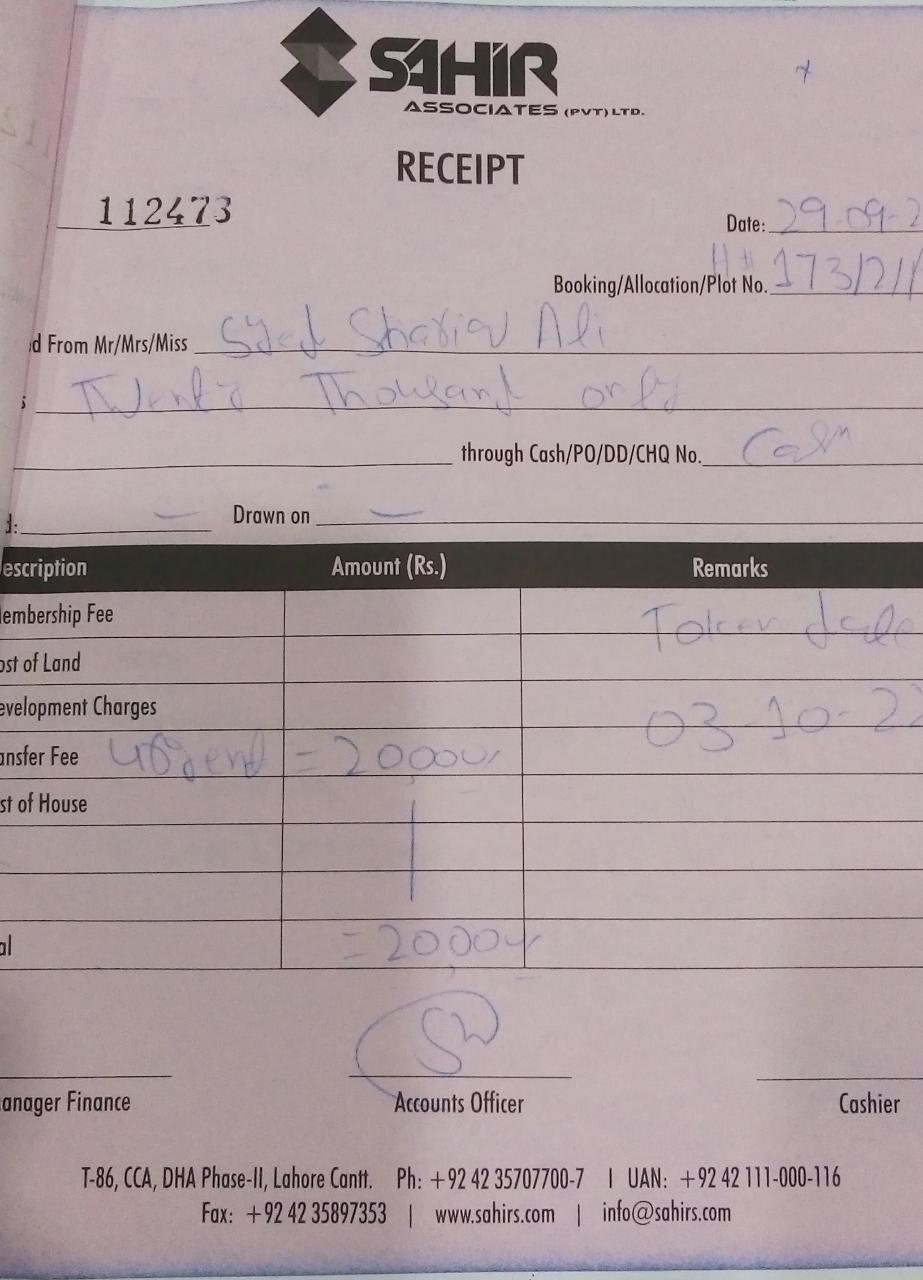 SAHIR
ASSOCIATES (PVT) LTD.
RECEIPT
112473
Date: 29-09-2
H# 173/2/
Booking/Allocation/Plot No.
d From Mr/Mrs/Miss Syed Ali
Twenty Thousand only
through Cash/PO/DD/CHQ No. Cash
d: — Drawn on —
escription Amount (Rs.) Remarks
embership Fee Token
ost of Land
evelopment Charges 03-10-22
ansfer Fee urgent = 20,000/
st of House
al = 20,000/
anager Finance Accounts Officer Cashier
T-86, CCA, DHA Phase-II, Lahore Cantt. Ph: +92 42 35707700-7 | UAN: +92 42 111-000-116
Fax: +92 42 35897353 | www.sahirs.com | info@sahirs.com